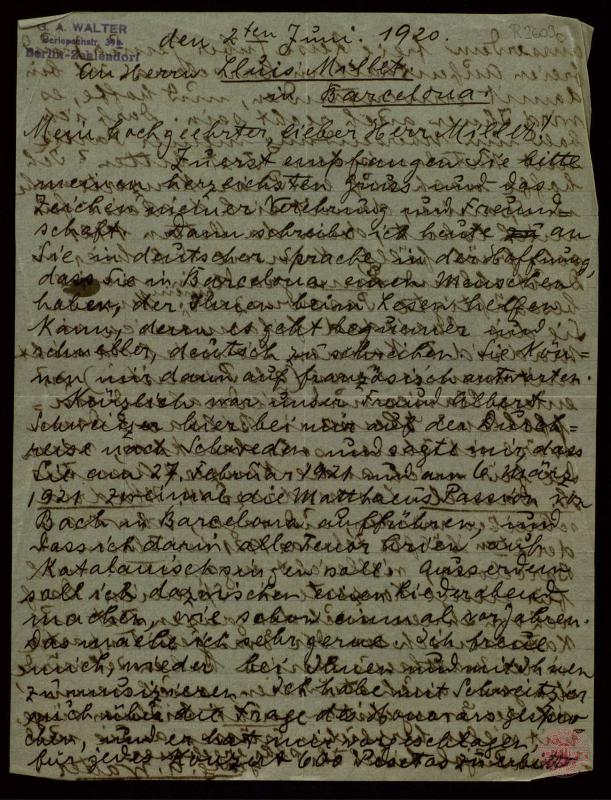 G. A. WALTER
Berlin-Zehlendorf
R 2609
den 2ten Juni. 1920.
An Herrn Lluis Millet.
in Barcelona.
Mein hochgeehrter, lieber Herr Millet!
Zuerst empfangen Sie bitte
meinen herzlichsten Gruss und das
Zeichen meiner Verehrung und Freund-
schaft. Dann schreibe ich heute zu an
Sie in deutscher Sprache in der Hoffnung,
dass Sie in Barcelona einen Menschen
haben, der Ihnen beim Lesen helfen
kann, denn es geht bequemer und
schneller, deutsch zu schreiben. Sie kön-
nen mir dann auf französisch antworten.
Kürzlich war unser Freund Albert
Schweitzer hier bei mir auf der Durch-
reise nach Schweden und sagte mir, dass
Sie am 27. Februar 1921 und am 6. März
1921 zweimal die Matthäus Passion von
Bach in Barcelona aufführen, und
dass ich darin alle Tenor Arien auf
Katalanisch singen soll. Ausserdem
soll ich dazwischen einen Liederabend
machen, wie schon einmal vor Jahren.
Das mache ich sehr gerne. Ich freue
mich, wieder bei Ihnen und mit Ihnen
zu musizieren. Ich habe mit Schweitzer
auch über die Frage des Honorars gespro-
chen, und er hat mir vorgeschlagen,
für jedes Konzert 600 Pesetas zu